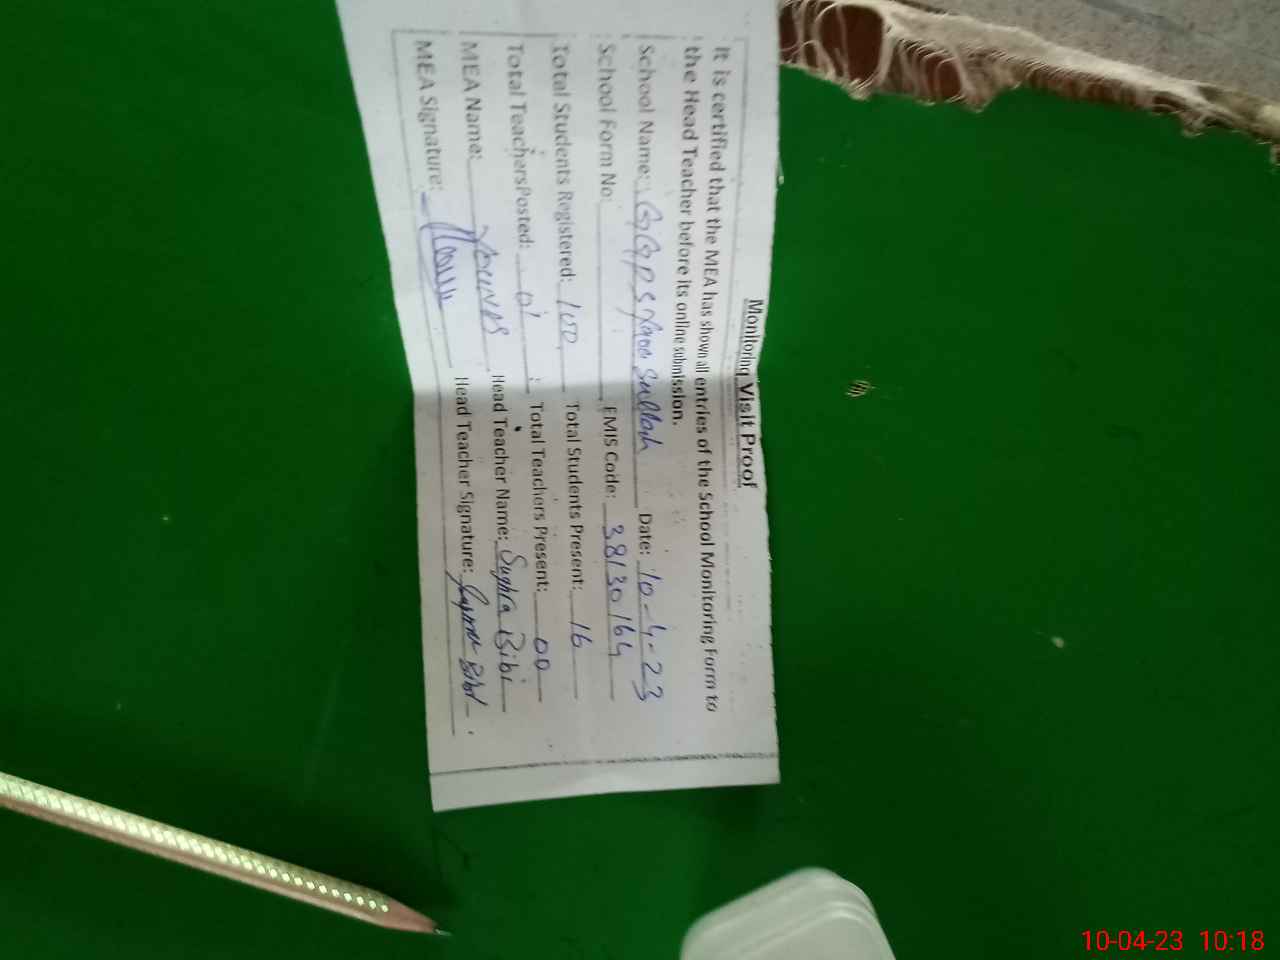 Monitoring Visit Proof
It is certified that the MEA has shown all entries of the School Monitoring Form to
the Head Teacher before its online submission.
School Name: GGPS Date: 10-4-23
School Form No: EMIS Code: 38130164
Total Students Registered: 100 Total Students Present: 16
Total TeachersPosted: 01 Total Teachers Present: 00
MEA Name: Younas Head Teacher Name: Sughra Bibi
MEA Signature: Head Teacher Signature:
10-04-23 10:18